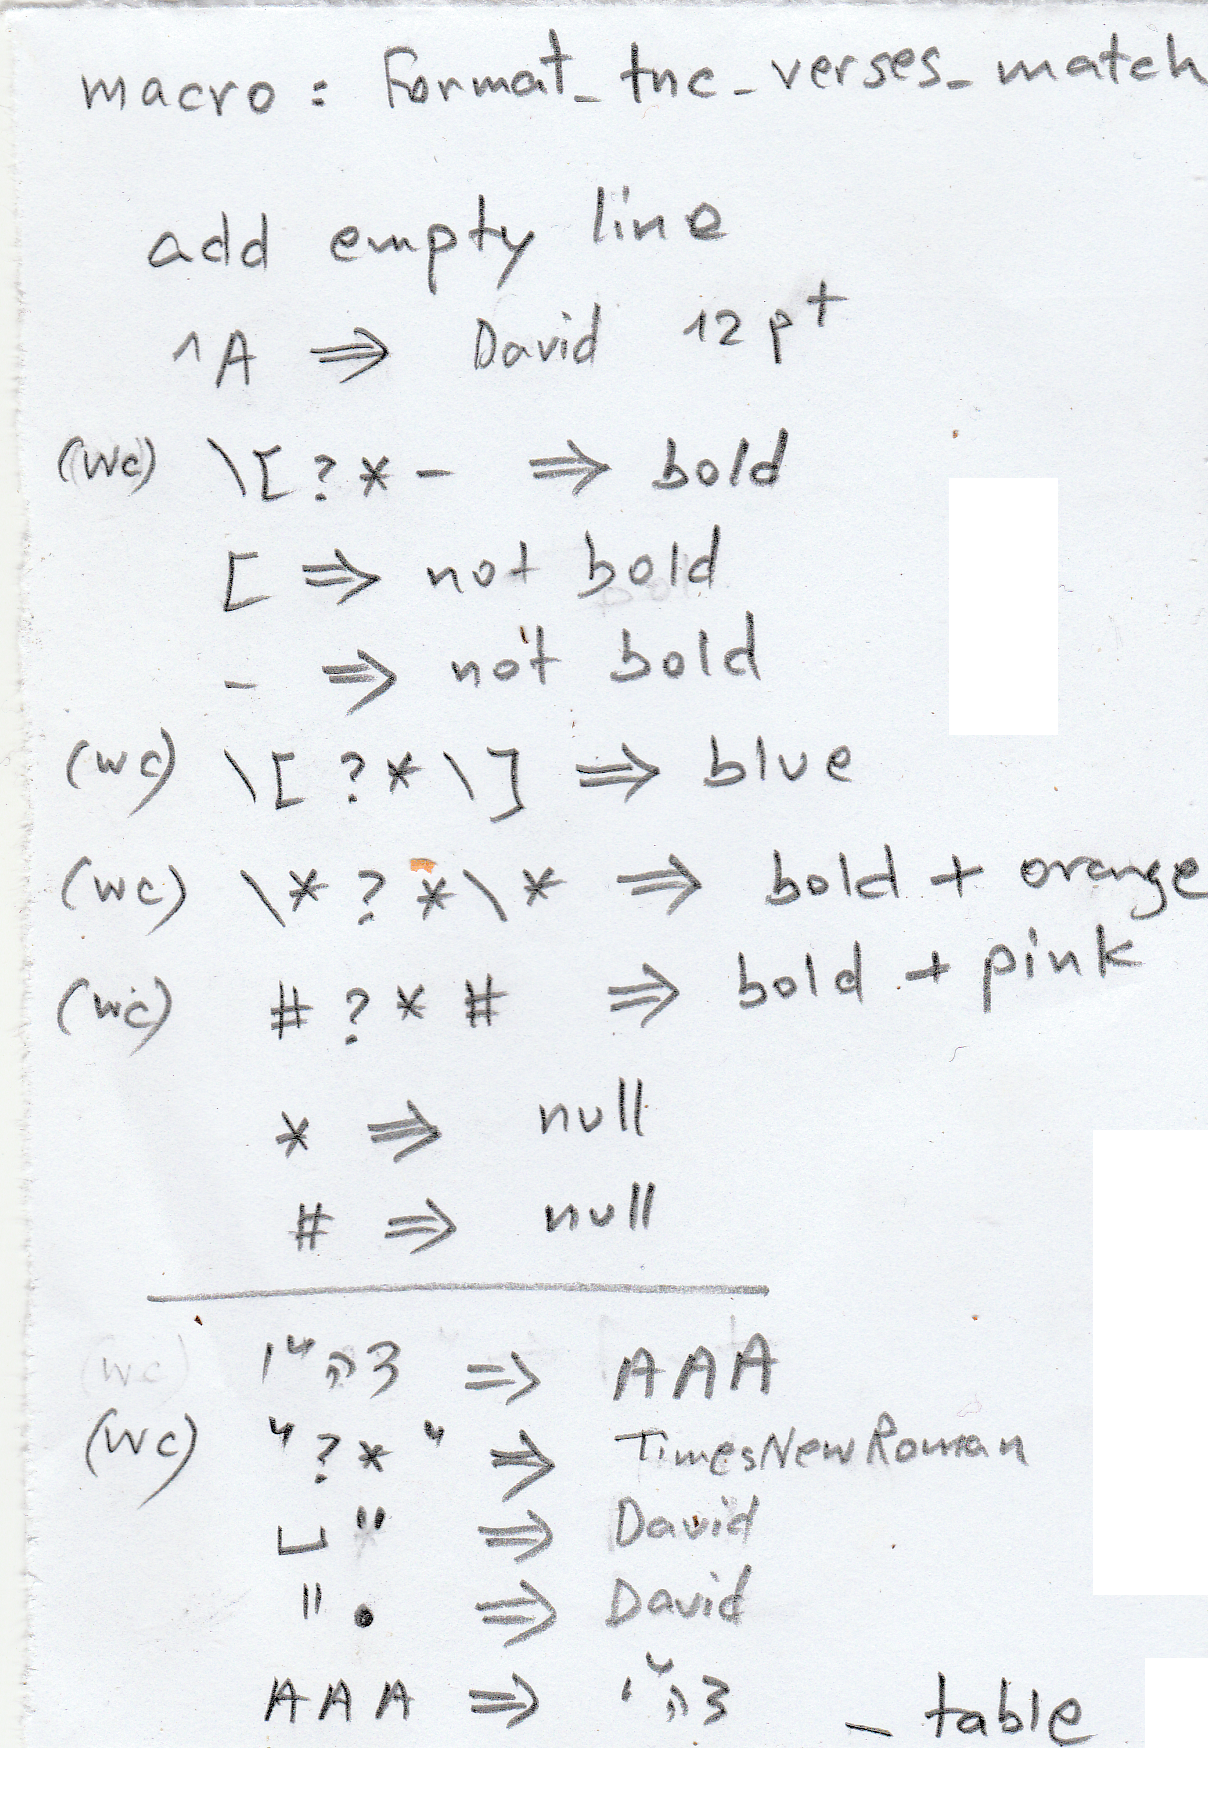 macro : Format_tnc_verses_match
add empty line
^A ⇒ David 12pt
(wc) \[?*- ⇒ bold
[ ⇒ not bold
- ⇒ not bold
(wc) \[?*\] ⇒ blue
(wc) \*?*\* ⇒ bold + orange
(wc) #?*# ⇒ bold + pink
* ⇒ null
# ⇒ null
(wc) ⇒ AAA
(wc) "?*" ⇒ TimesNewRoman
⎵" ⇒ David
". ⇒ David
AAA ⇒ _table